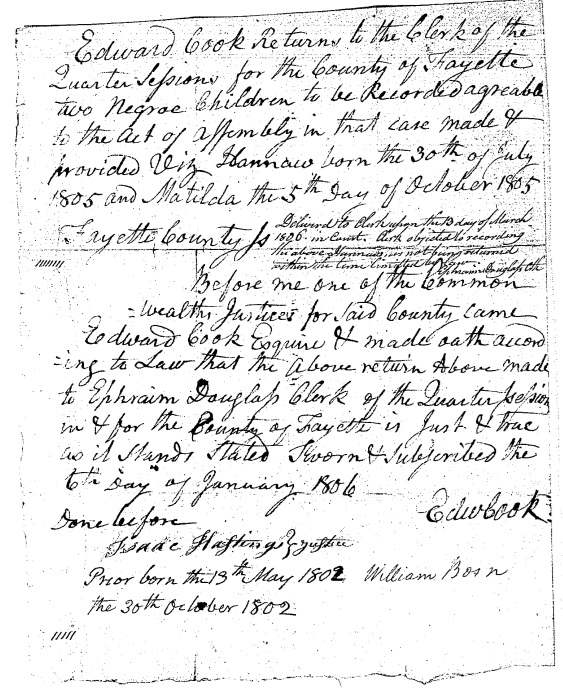 Edward Cook Returns to the Clerk of the
Quarter Sessions for the County of Fayette
two Negroe Children to be Recorded agreable
to the Act of assembly in that case made &
provided Viz Hannaw born the 30th of July
1805 and Matilda the 5th Day of October 1805
Fayette County Ss
Deliverd to Clerk upon the 13 day of March
1806 in Court. Clerk objected to recording
the above Hannaw as not being returned
within the time limitted by Law
Ephraim Douglass Clk
Before me one of the Common
=wealths Justices for said County came
Edward Cook Esquire & made oath accord
=ing to Law that the above return above made
to Ephraim Douglass Clerk of the Quarter Session
in & for the County of Fayette is Just & true
as it Stands Stated Sworn & Subscribed the
6th Day of January 1806
Edw Cook
Done before
Isaac Hastings Justice
Prior born the 13th May 1802 William Born
the 30th October 1802